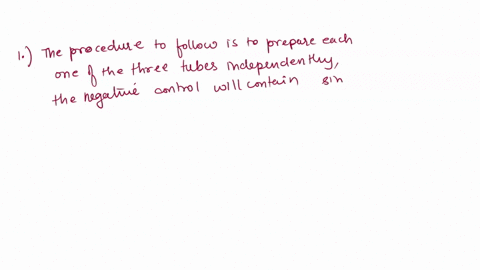 1.) The procedure to follow is to prepare each
one of the three tubes independently,
the negative control will contain sin